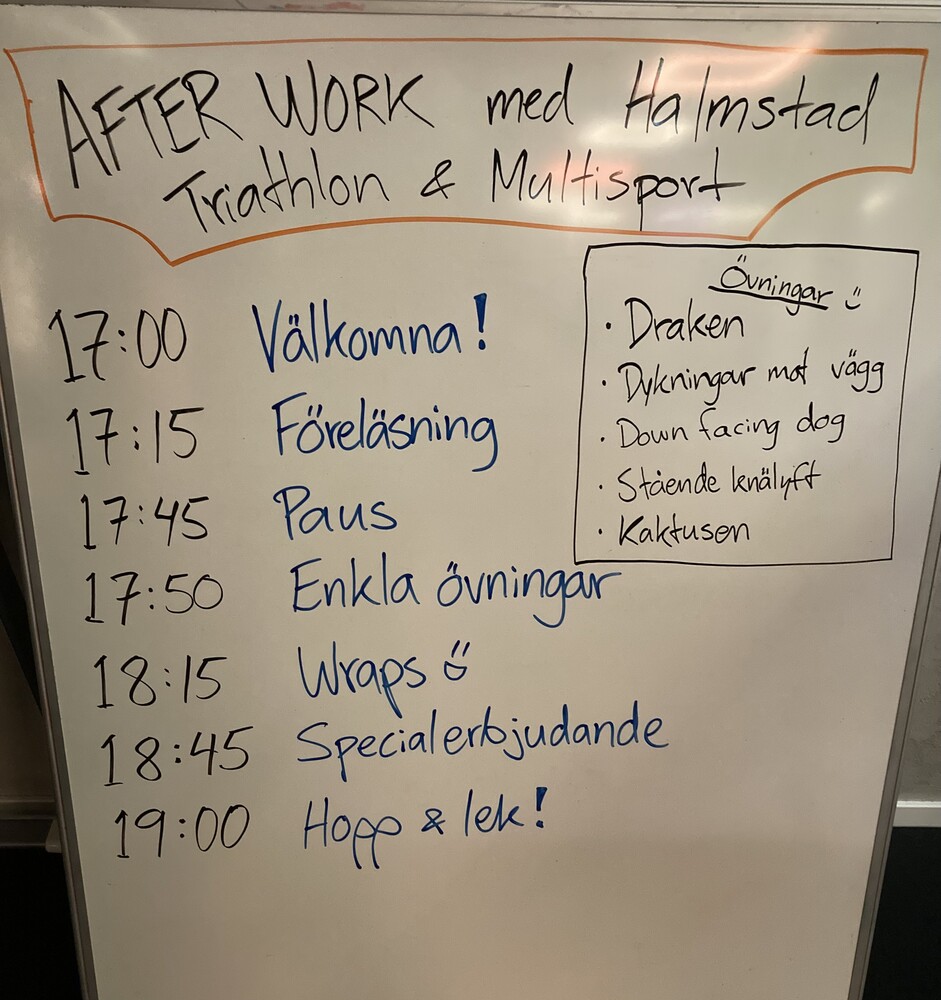 AFTER WORK med Halmstad
Triathlon & Multisport
17:00 Välkomna!
17:15 Föreläsning
17:45 Paus
17:50 Enkla övningar
18:15 Wraps
18:45 Specialerbjudande
19:00 Hopp & lek!
Övningar
· Draken
· Dykningar mot vägg
· Down facing dog
· Stående knälyft
· Kaktusen